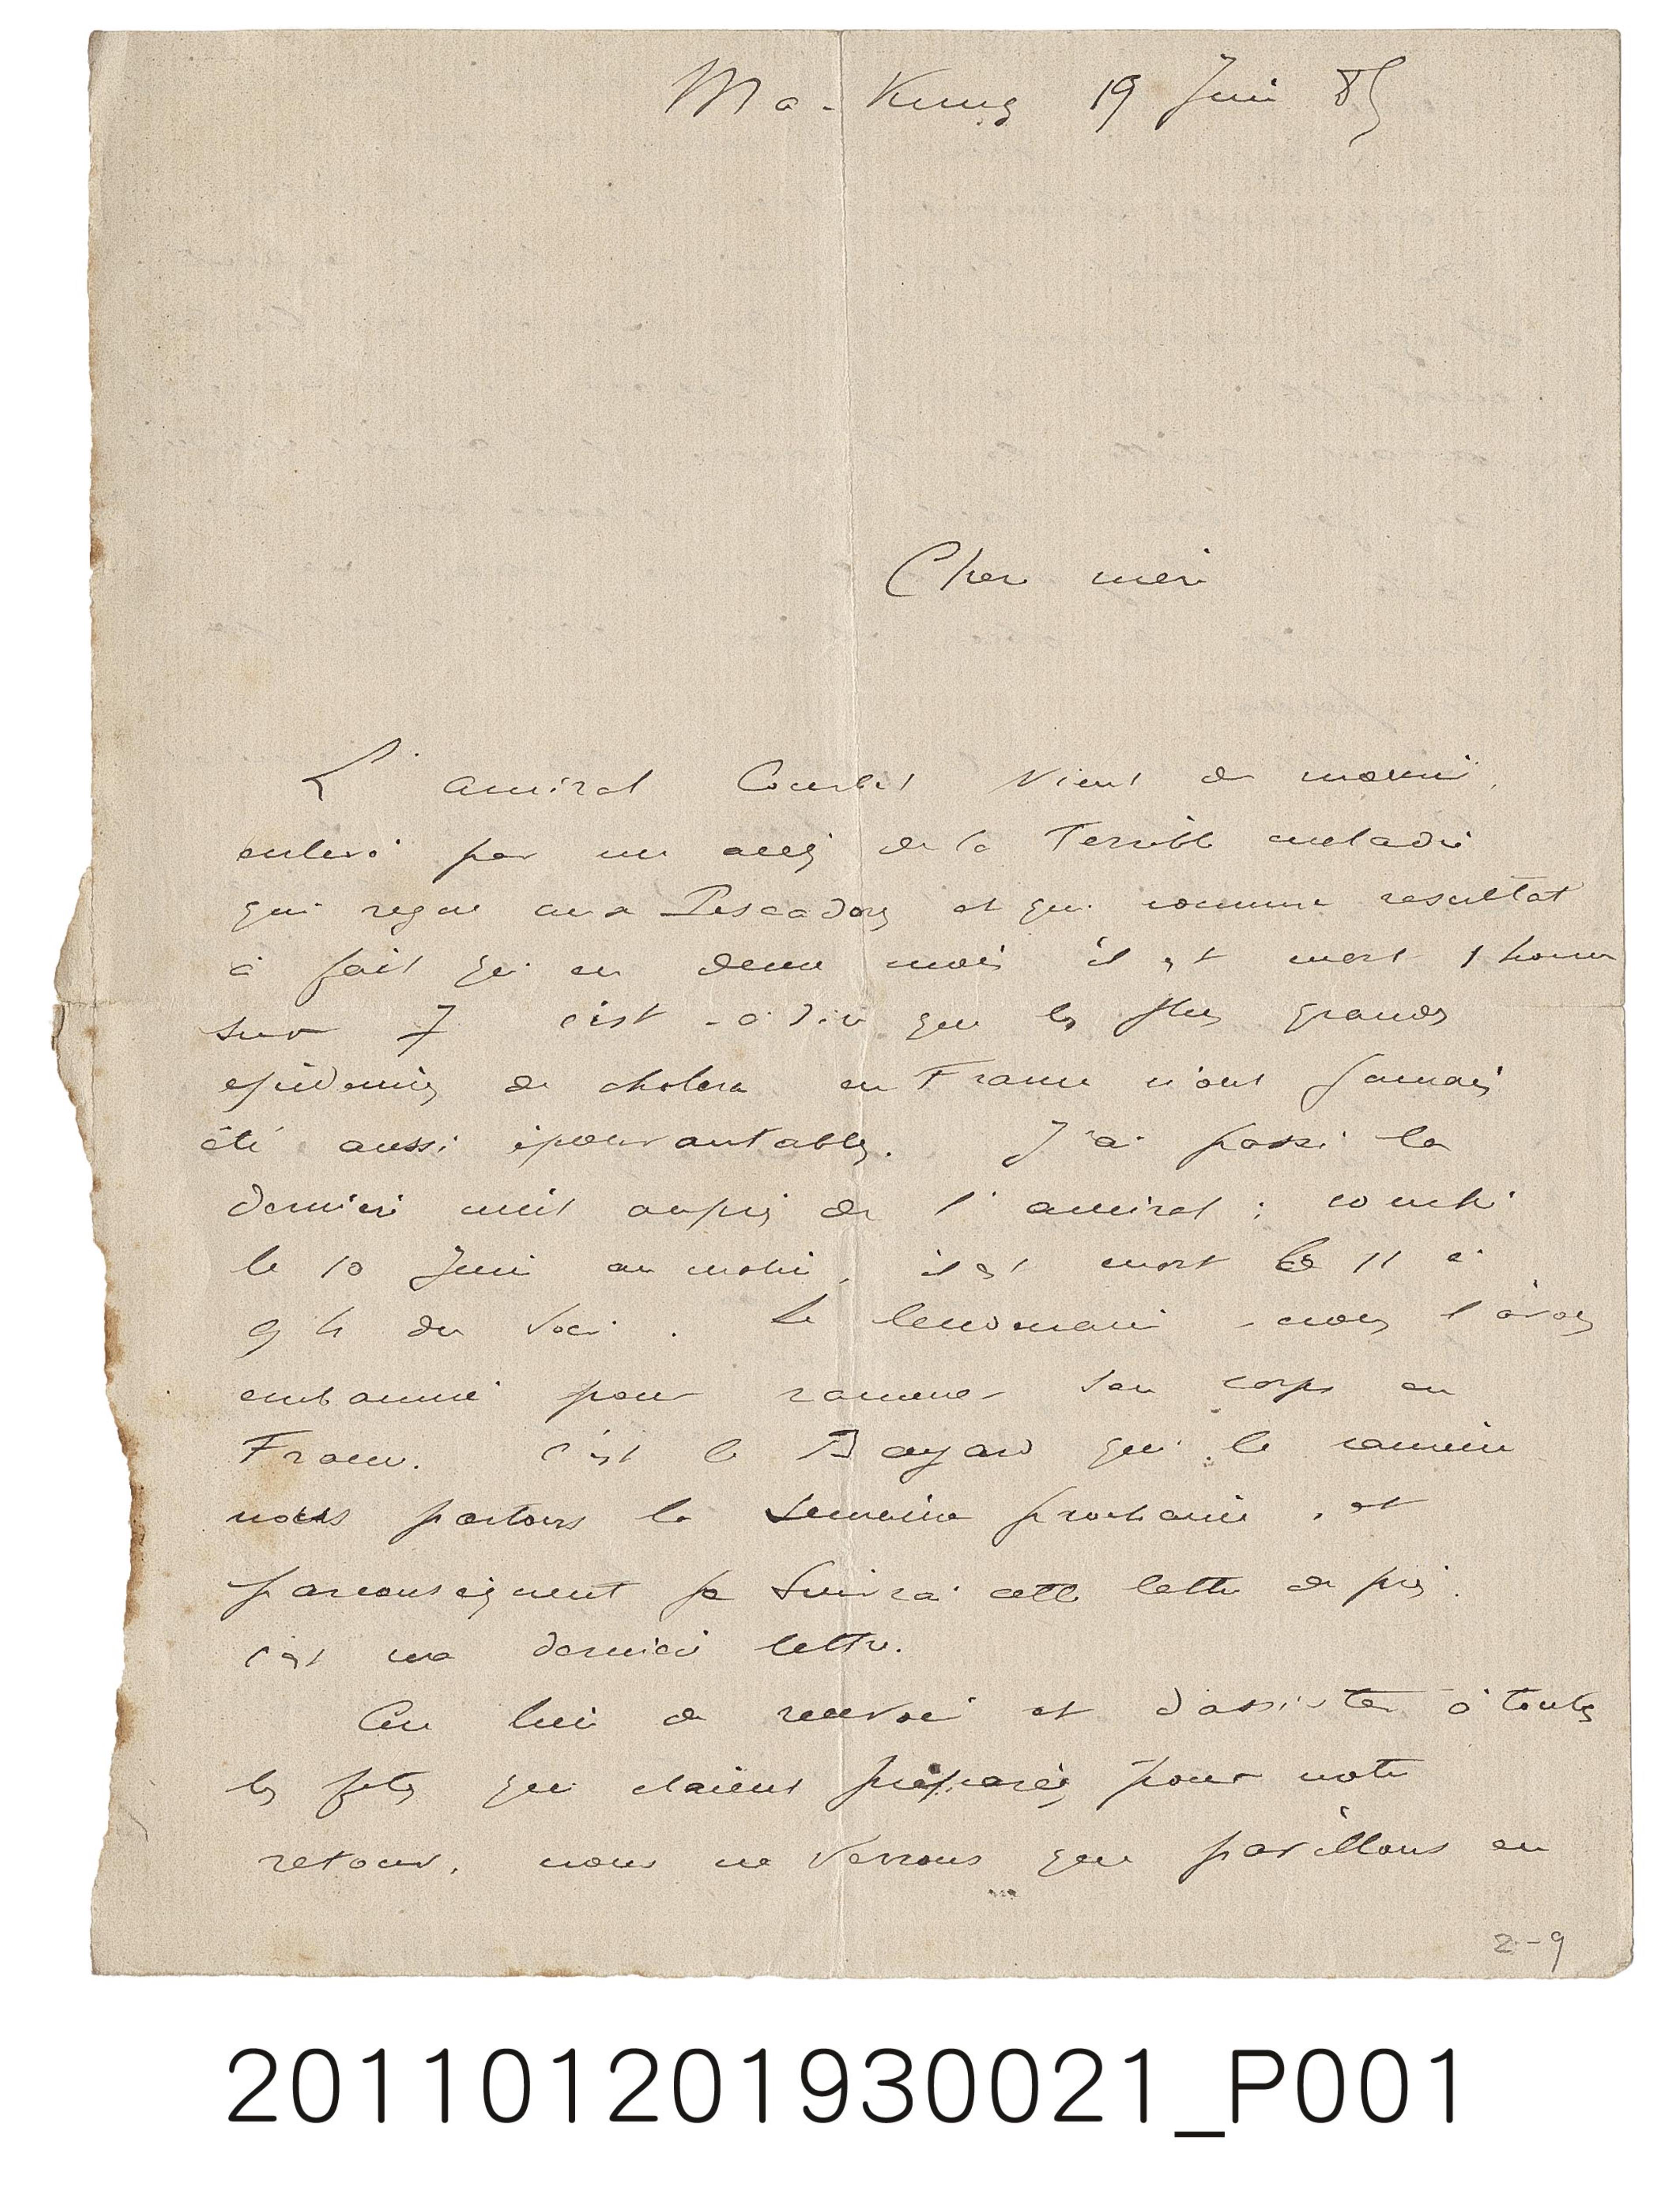 Ma-Kung 19 Juin 85
Cher mère
L'amiral Courbet vient de mourir,
enlevé par un accès de la Terrible maladie
qui regne aux Pescadores et qui comme resultat
à fait qu'en deux mois il est mort 1 homme
sur 7 c'est-à-dire que les plus grandes
epidemies de cholera en France n'ont jamais
été aussi épouvantables. J'ai passé la
dernière nuit auprès de l'amiral ; couché
le 10 Juin au matin, il est mort le 11 à
9 h du soir. Le lendemain nous l'avons
embaumé pour ramener son corps en
France. C'est le Bayard qui le ramène
nous partons la semaine prochaine, et
parconseigneut je suivrai cette lettre de près.
c'est ma dernière lettre.
Au lieu de recevoir et d'assister à toutes
les fetes qui etaient préparées pour notre
retour, nous ne verrons que pavillons en
2-9
201101201930021_P001